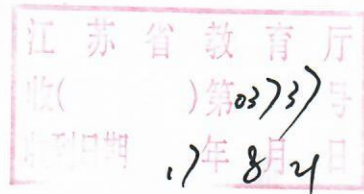 江苏省教育厅
收( )第03737号
收到日期 17年8月21日